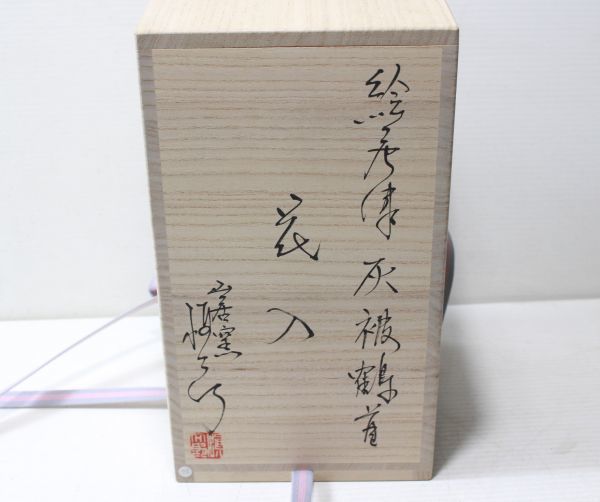 絵唐津灰被鶴首
花入
山居窯